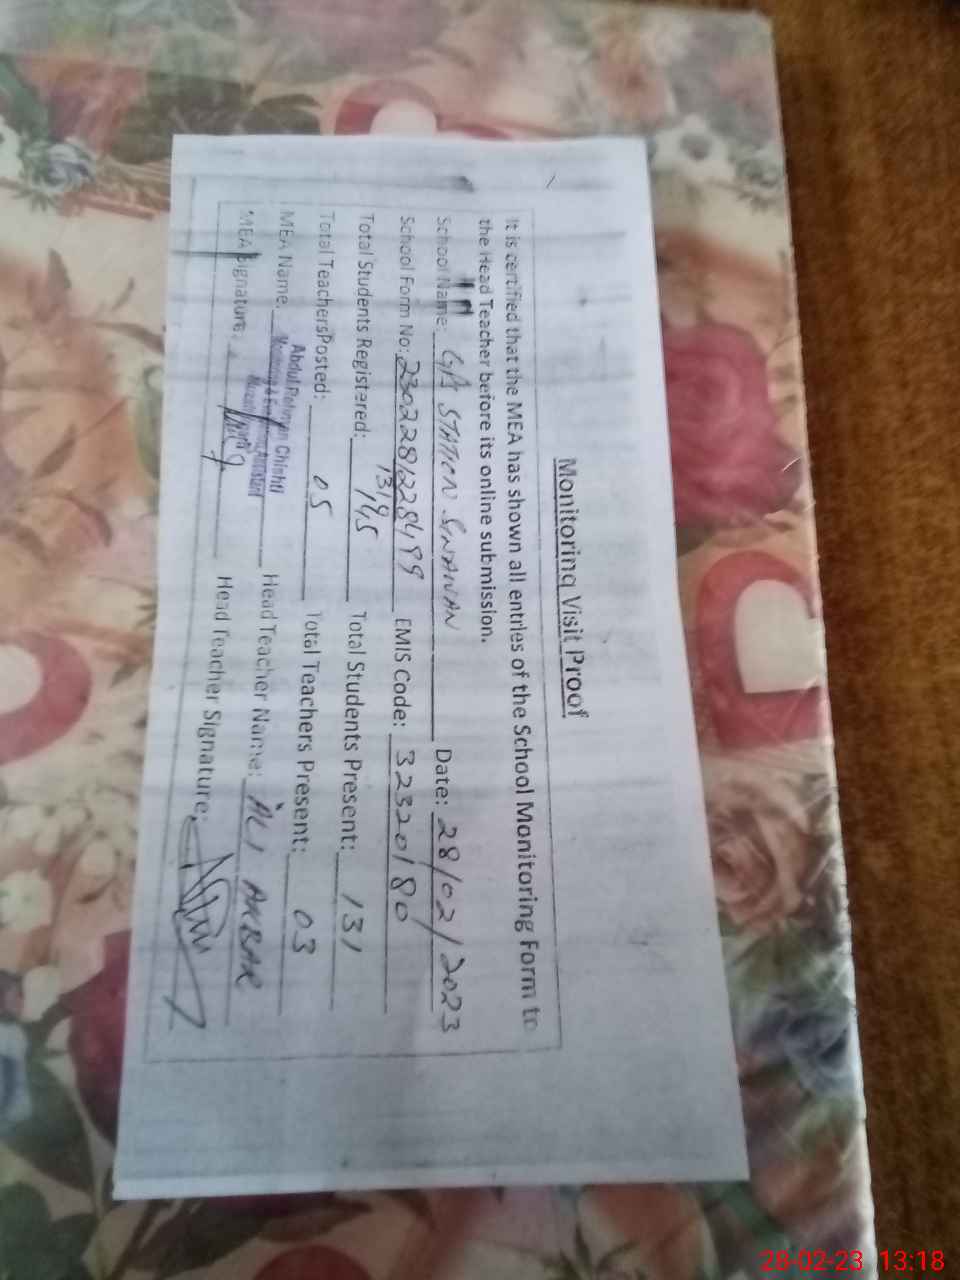 Monitoring Visit Proof
It is certified that the MEA has shown all entries of the School Monitoring Form to
the Head Teacher before its online submission.
School Name: STATION SINAWAN Date: 28/02/2023
School Form No: EMIS Code: 32320180
Total Students Registered: Total Students Present: 131
Total TeachersPosted: 05 Total Teachers Present: 03
MEA Name: Abdul Rehman Chishti Head Teacher Name: ALI AKBAR
Monitoring & Assistant
MEA Signature: Head Teacher Signature:
28-02-23 13:18